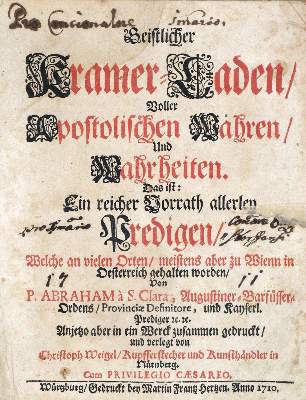 Pro Concionatore
Geistlicher
Kramer-Laden/
Voller
Apostolischen Wahren/
Und
Wahrheiten.
Das ist:
Ein reicher Vorrath allerley
Predigen/
Welche an vielen Orten/ meistens aber zu Wienn in
Oesterreich gehalten worden/
17 Von 11
P. ABRAHAM à S. Clara, Augustiner-Barfüsser-
Ordens/ Provinciæ Definitore, und Kayserl.
Prediger ꝛc. ꝛc.
Anjetzo aber in ein Werck zusammen gedruckt/
und verlegt von
Christoph Weigel/ Kupfferstecher und Kunsthändler in
Nürnberg.
Cum PRIVILEGIO CÆSAREO.
Würtzburg/ Gedruckt bey Martin Frantz Hertzen. Anno 1710.